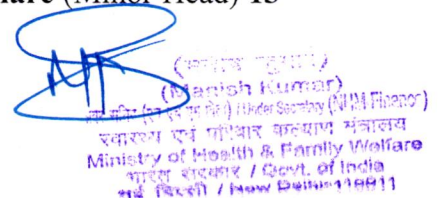 (Minor Head) 13
(मनीष कुमार)
(Manish Kumar)
/ Under Secretary (NHM Finance)
स्वास्थ्य एवं परिवार कल्याण मंत्रालय
Ministry of Health & Family Welfare
भारत सरकार / Govt. of India
नई दिल्ली / New Delhi-110011